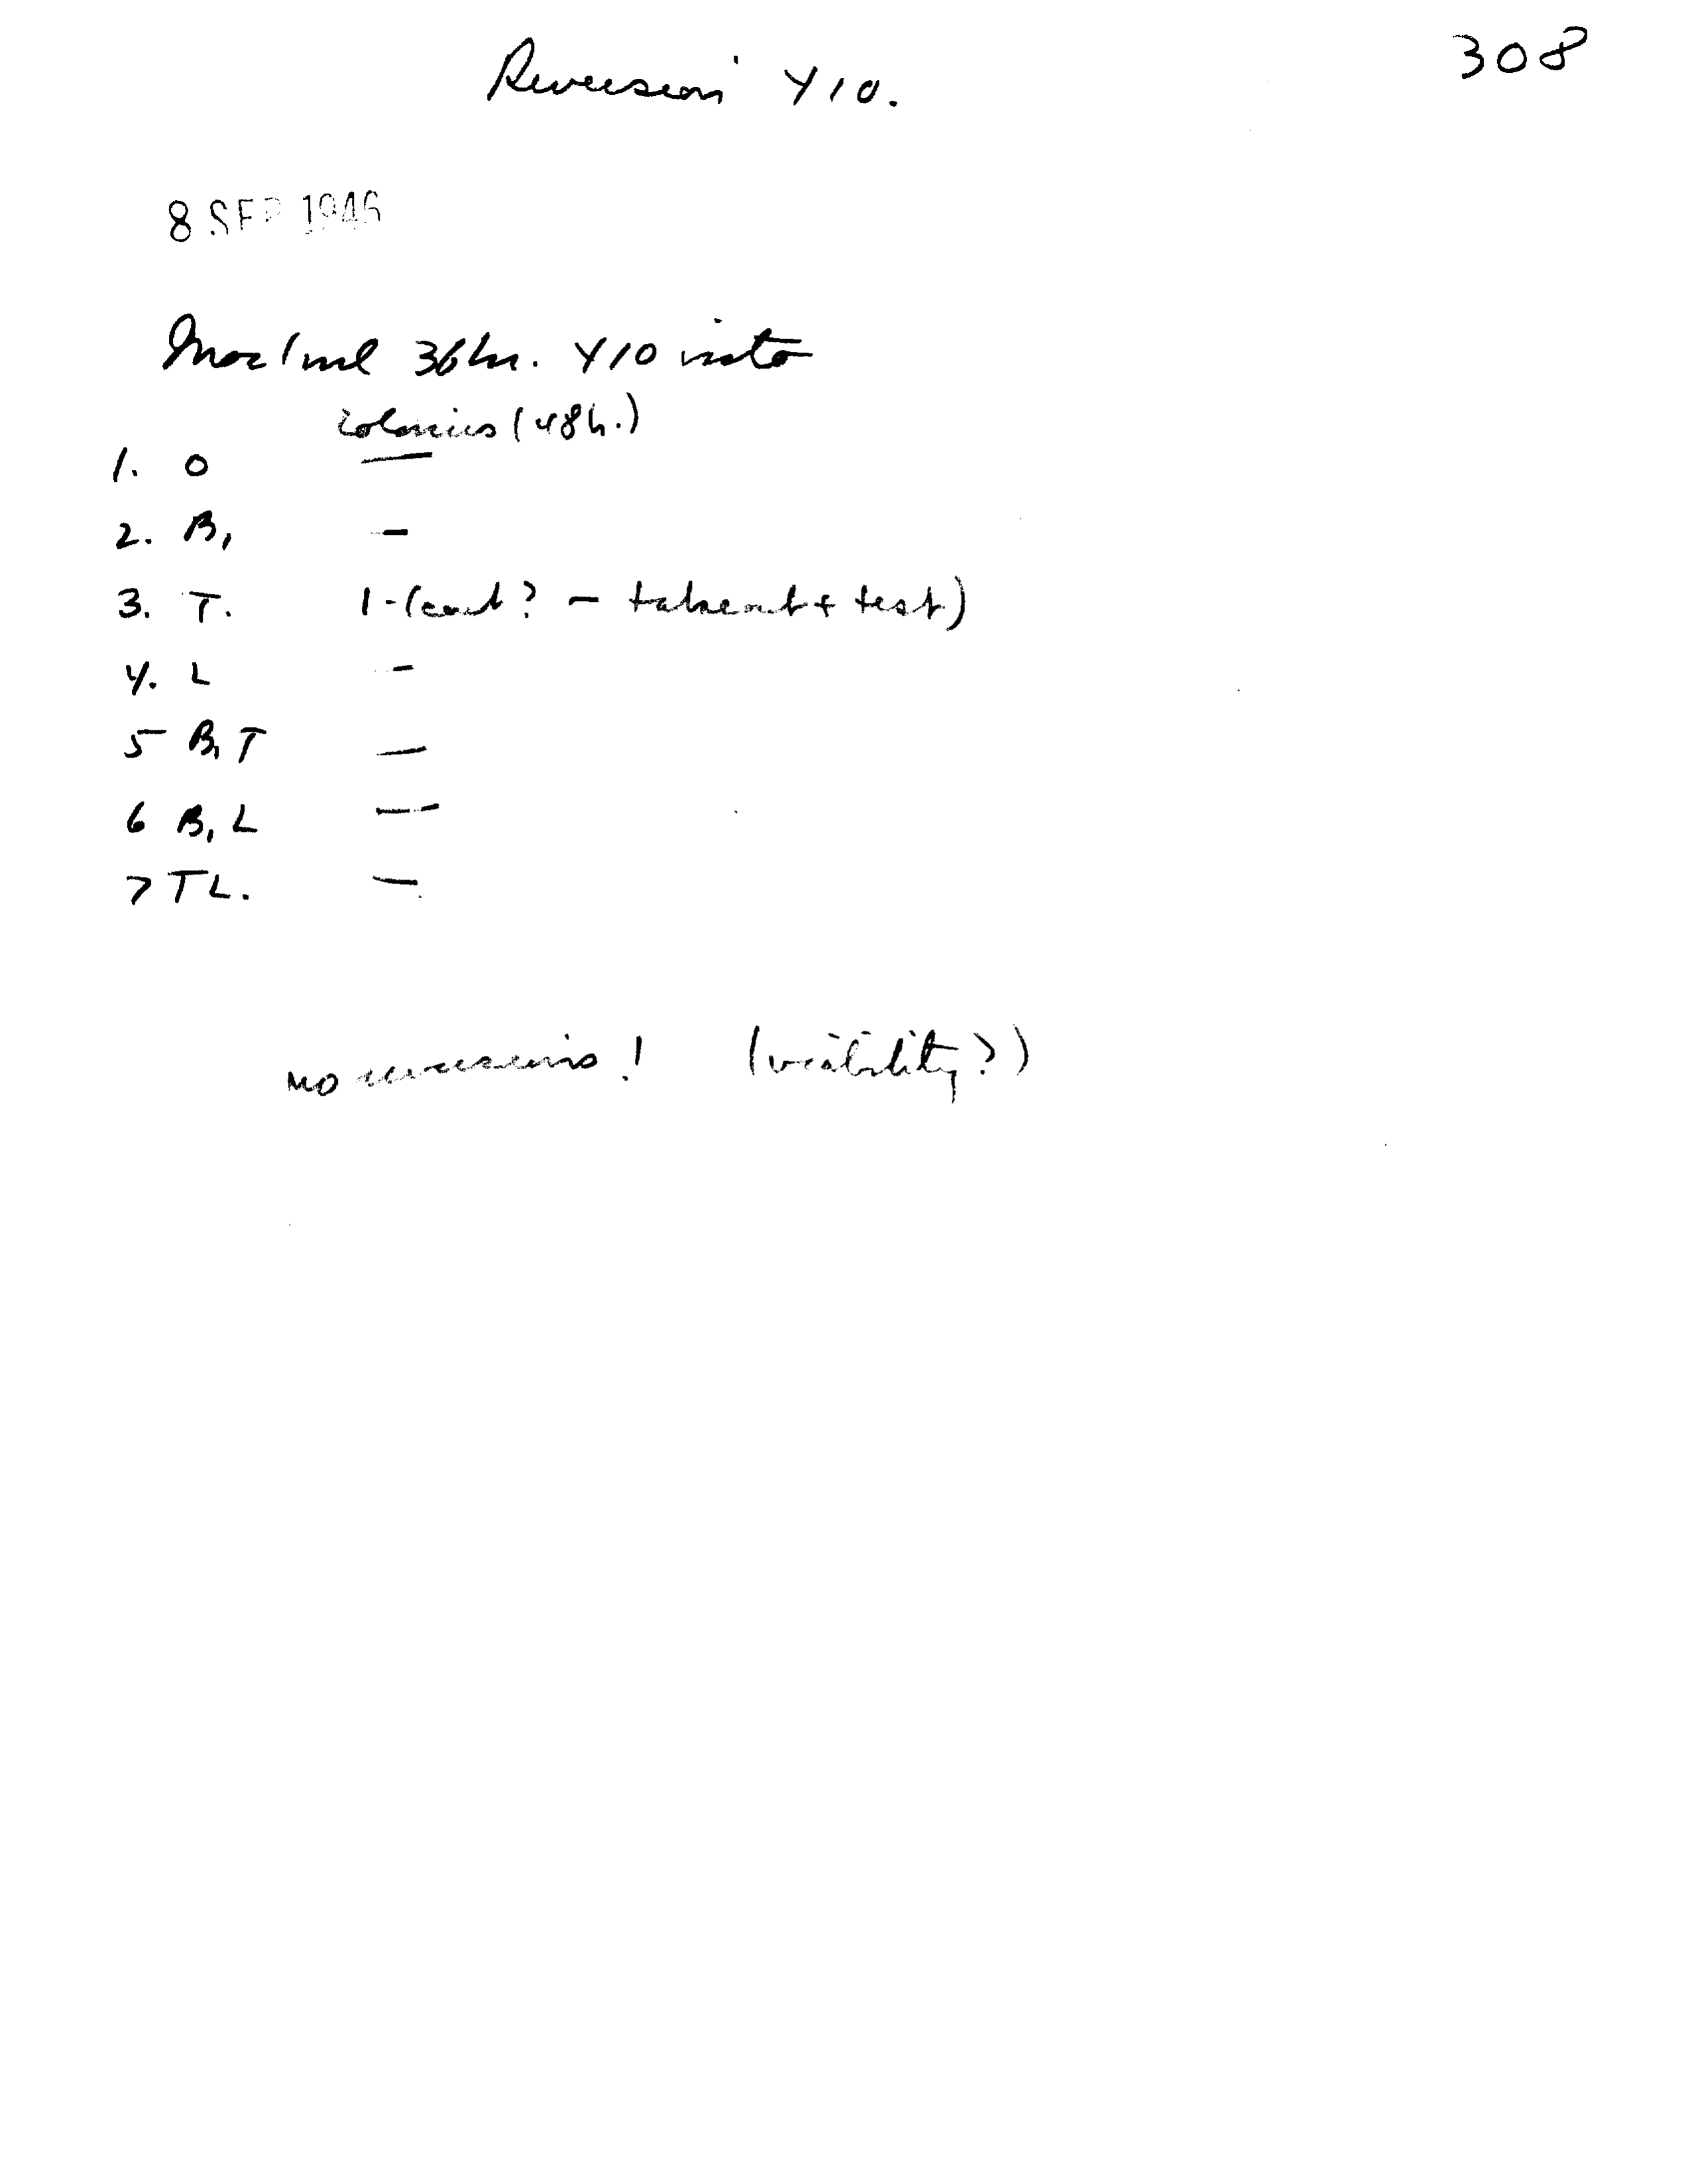 308
Reversion Y10.
8 SEP 1946
Inoc 1 ml 36 hr. Y10 into
colonies (48h.)
1. O —
2. B, –
3. T. 1 - (cont? – take out + test)
4. L –
5 B, T —
6 B, L —
7 TL. —
no reversions! (viability?)